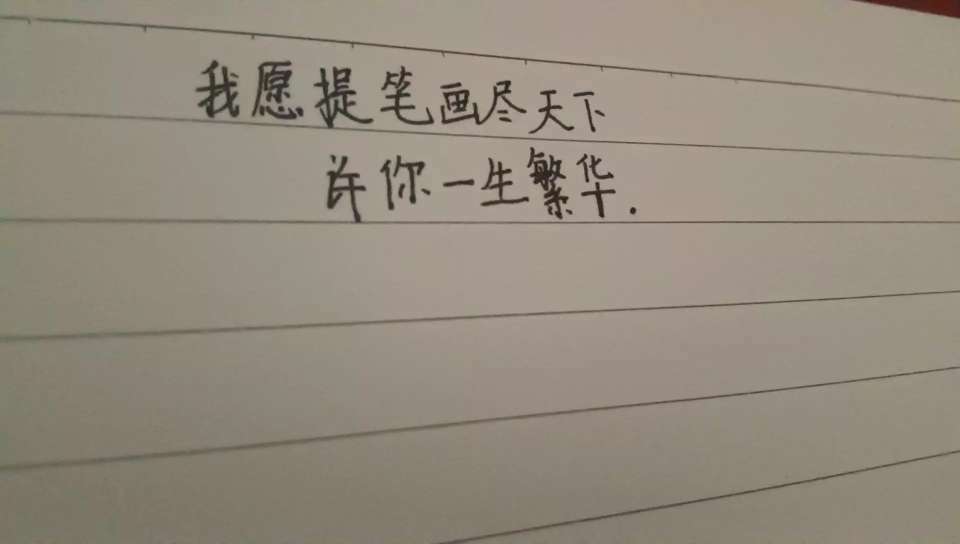 我愿提笔画尽天下
许你一生繁华.